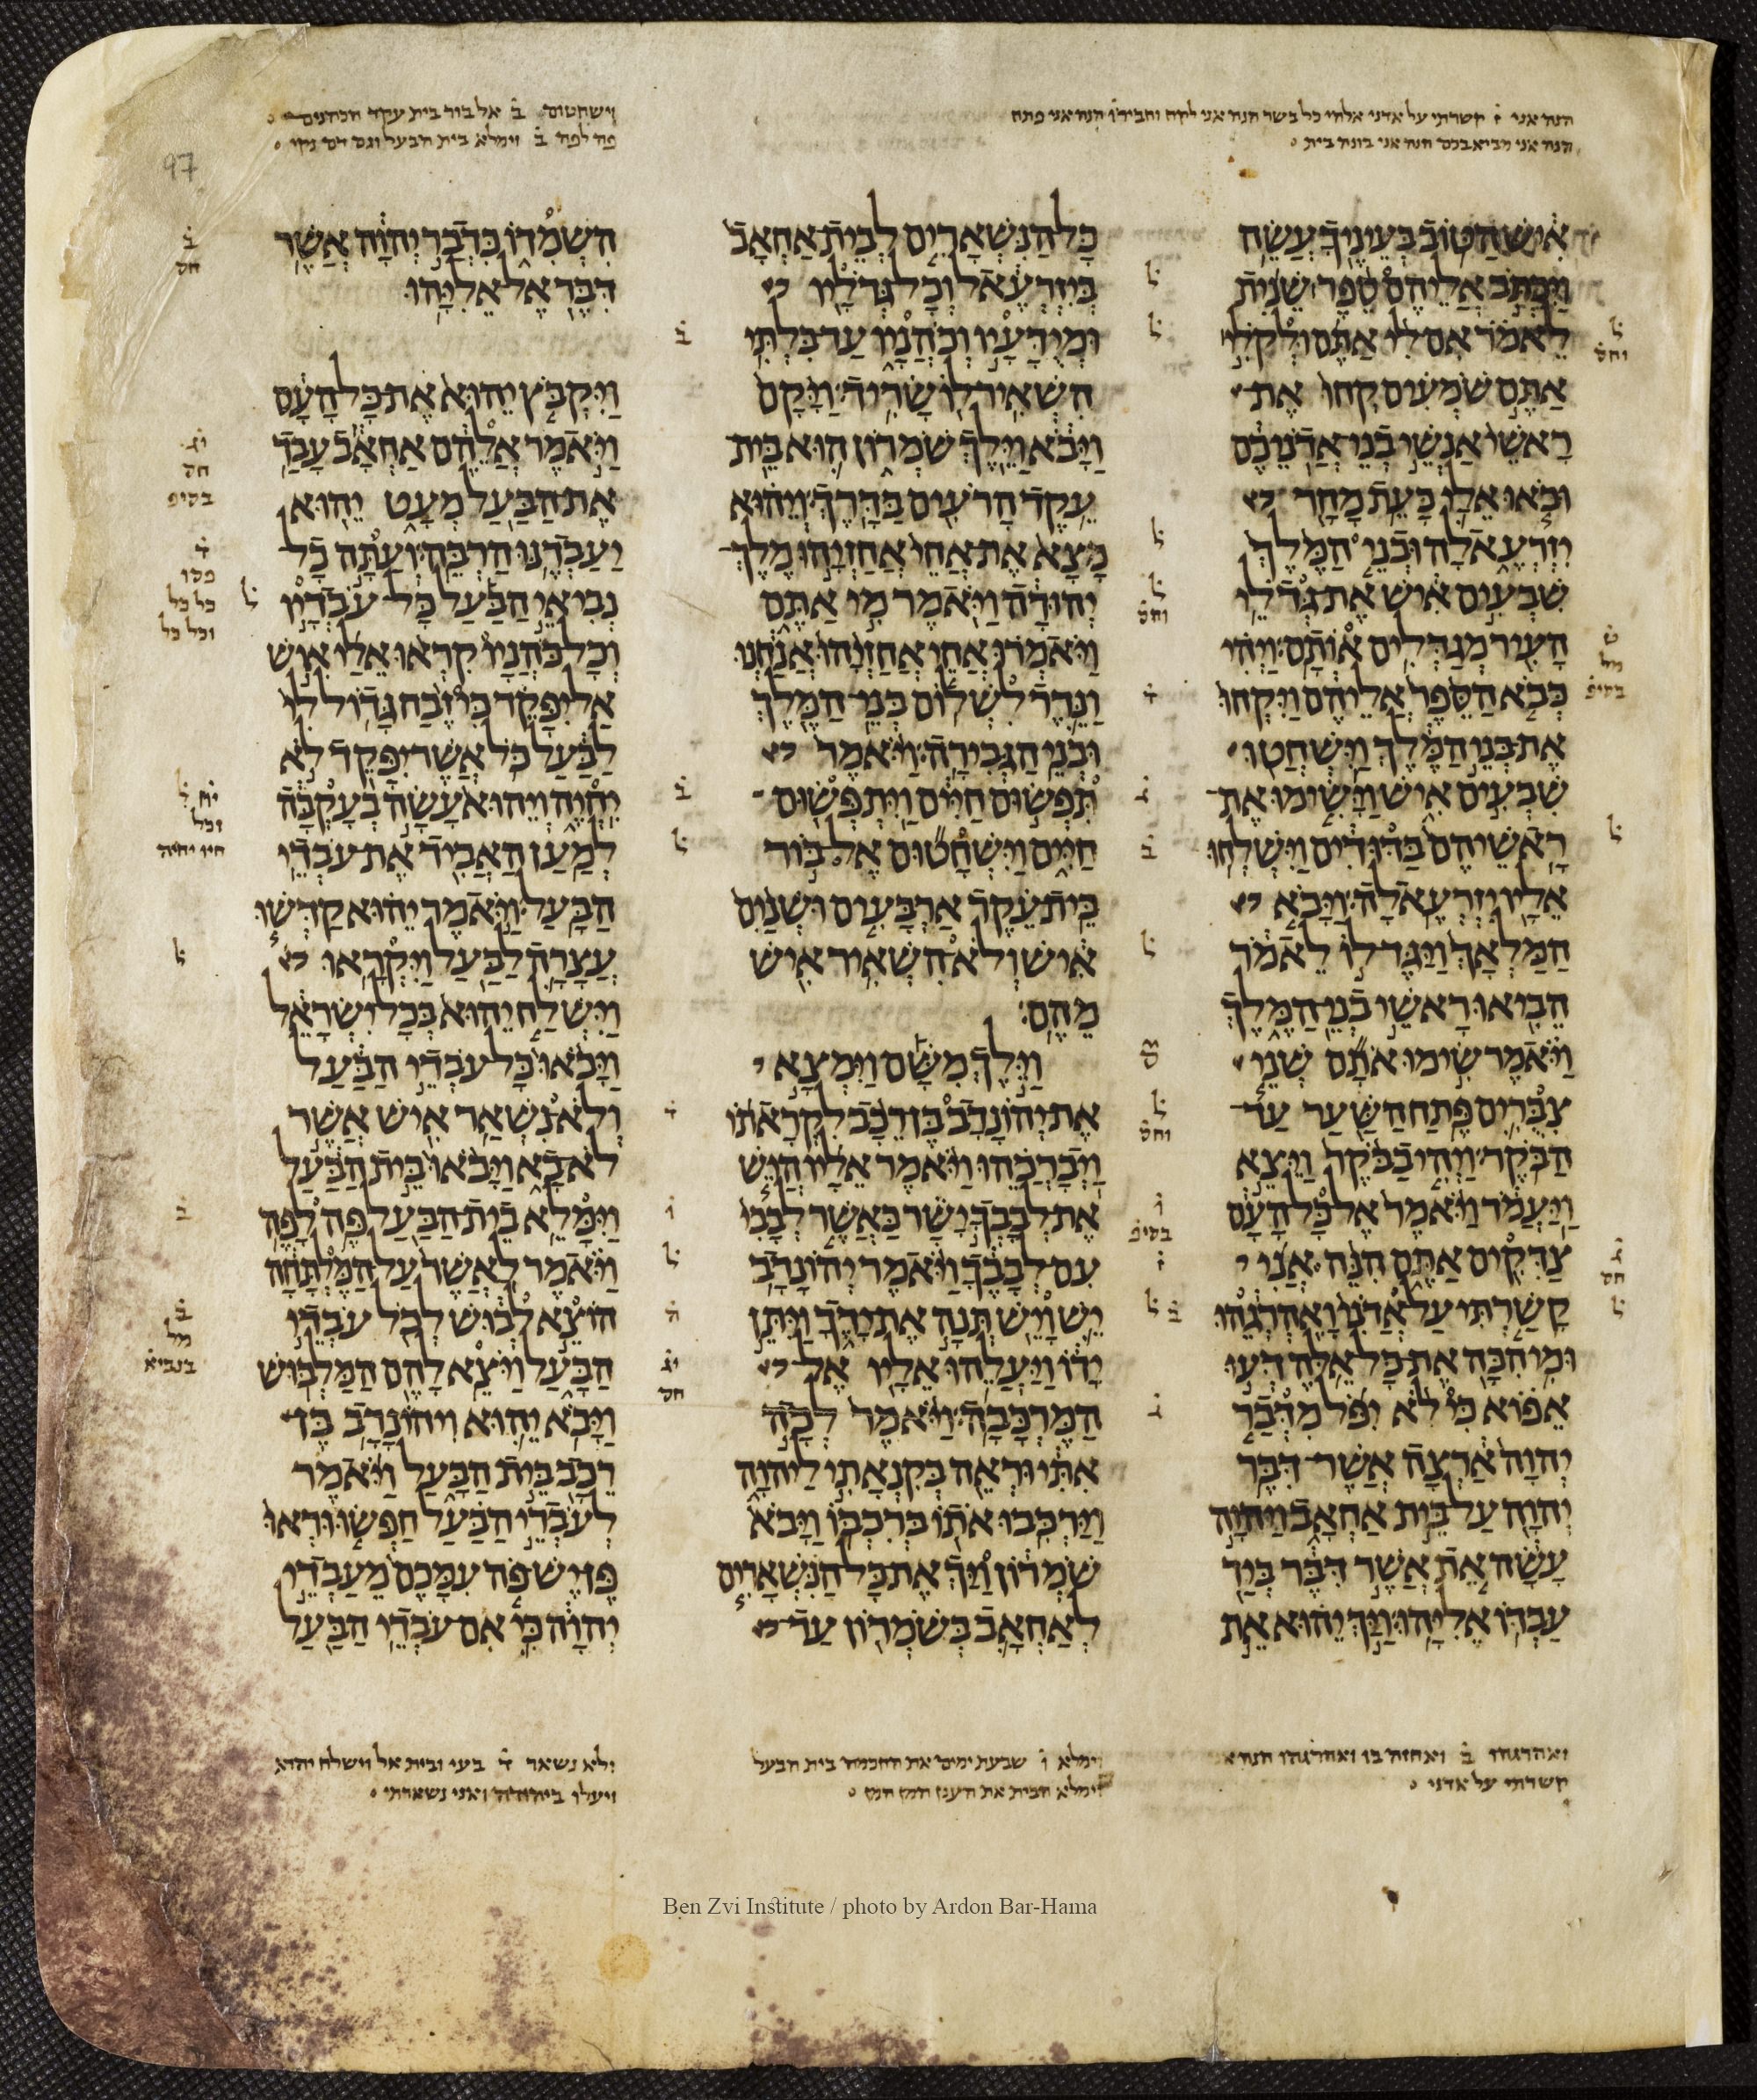 הנה אני ז̇ קשרתי על אדני אלהי כל בשר הנה אני לקח וחביר̇ו הנה אני פתח
הנה אני מביא בכם הנה אני בונה בית
וישחטום ב̇ אל בור בית עקד הכהנים
פה לפה ב̇ וימלא בית הבעל וגם דם נקי
97
איש הטוב בעיניך עשה
ויכתב אליהם ספר שנית
לאמר אם לי אתם ולקלי
אתם שמעים קחו את
ראשי אנשי בני אדניכם
ובאו אלי כעת מחר
יזרעאלה ובני המלך
שבעים איש את גדלי
העיר מגדלים אותם ויהי
כבא הספר אליהם ויקחו
את בני המלך וישחטו
שבעים איש וישימו את
ראשיהם בדודים וישלחו
אליו יזרעאלה ויבא
המלאך ויגד לו לאמר
הביאו ראשי בני המלך
ויאמר שימו אתם שני
צברים פתח השער עד
הבקר ויהי בבקר ויצא
ויעמד ויאמר אל כל העם
צדקים אתם הנה אני
קשרתי על אדני ואהרגהו
ומי הכה את כל אלה דעו
אפוא כי לא יפל מדבר
יהוה ארצה אשר דבר
יהוה על בית אחאב ויהוה
עשה את אשר דבר ביד
עבדו אליהו ויך יהוא את
כל הנשארים לבית אחאב
ביזרעאל וכל גדליו
ומידעיו וכהניו עד בלתי
השאיר לו שריד ויקם
ויבא וילך שמרון הוא בית
עקד הרעים בדרך ויהוא
מצא את אחי אחזיהו מלך
יהודה ויאמר מי אתם
ויאמרו אחי אחזיהו אנחנו
ונרד לשלום בני המלך
ובני הגבירה ויאמר
תפשום חיים ויתפשום
חיים וישחטום אל בור
בית עקד ארבעים ושנים
איש ולא השאיר איש
מהם
וילך משם וימצא
את יהונדב בן רכב לקראתו
ויברכהו ויאמר אליו היש
את לבבך ישר כאשר לבבי
עם לבבך ויאמר יהונדב
יש ויש תנה את ידך ויתן
ידו ויעלהו אליו אל
המרכבה ויאמר לכה
אתי וראה בקנאתי ליהוה
וירכבו אתו ברכבו ויבא
שמרון ויך את כל הנשארים
לאחאב בשמרון עד
השמדו כדבר יהוה אשר
דבר אל אליהו
ויקבץ יהוא את כל העם
ויאמר אלהם אחאב עבד
את הבעל מעט יהוא
יעבדנו הרבה ועתה כל
נביאי הבעל כל עבדיו
וכל כהניו קראו אלי איש
אל יפקד כי זבח גדול לי
לבעל כל אשר יפקד לא
יחיה ויהוא עשה בעקבה
למען האביד את עבדי
הבעל ויאמר יהוא קדשו
עצרה לבעל ויקראו
וישלח יהוא בכל ישראל
ויבאו כל עבדי הבעל
ולא נשאר איש אשר
לא בא ויבאו בית הבעל
וימלא בית הבעל פה לפה
ויאמר לאשר על המלתחה
הוצא לבוש לכל עבדי
הבעל ויצא להם המלבוש
ויבא יהוא ויהונדב בן
רכב בית הבעל ויאמר
לעבדי הבעל חפשו וראו
פן יש פה עמכם מעבדי
יהוה כי אם עבדי הבעל
ואהרגהו ב̇ ואחזה בו ואהרגהו הנה אני
קשרתי על אדני
וימלא ו̇ שבעת ימים את החכמה בית הבעל
וימלא הבית את הענן חמן חמס
ולא נשאר ד̇ בעי ובית אל וישלח יהוא
ויעלו ביהודה ואני נשארתי
Ben Zvi Institute / photo by Ardon Bar-Hama